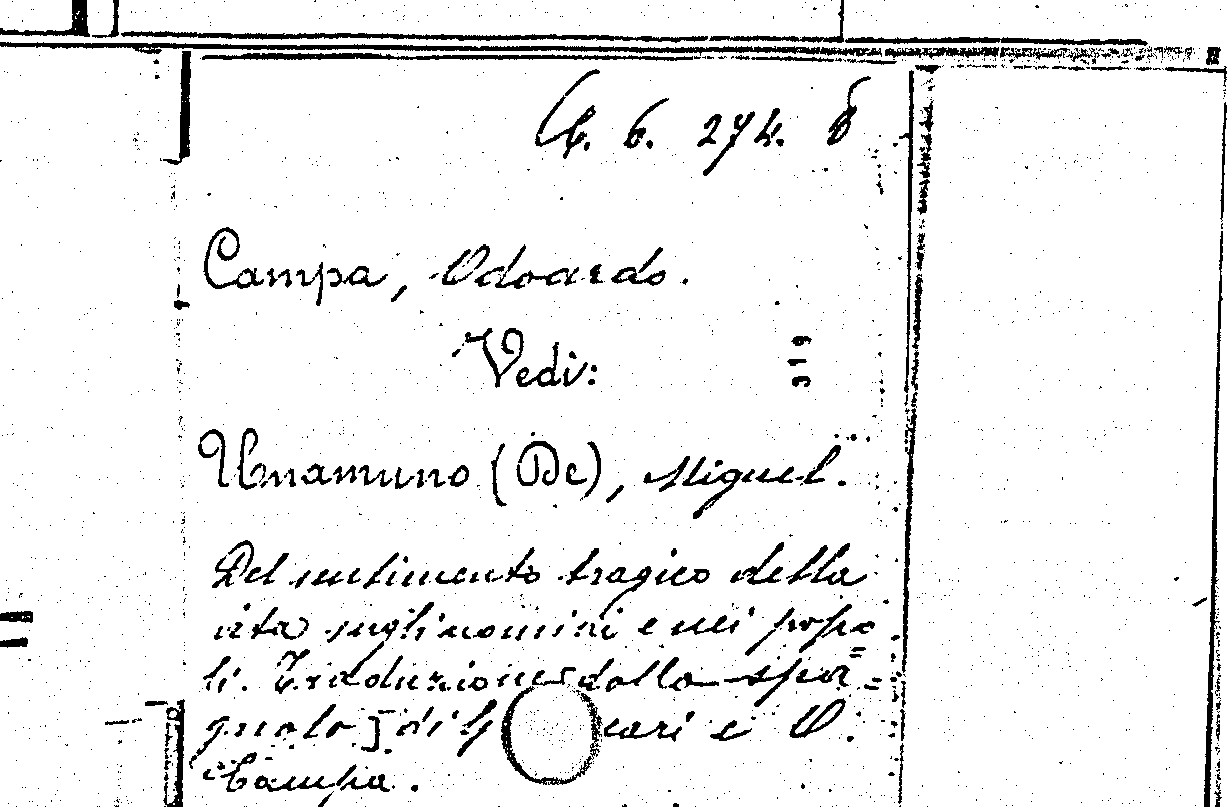 6. 274. 8
Campa, Odoardo.
Vedi:
319
Unamuno (De), Miguel.
Del sentimento tragico della
vita negli uomini e nei popo=
li. Traduzione [dallo spa=
gnolo] di G cari e O.
Campa.